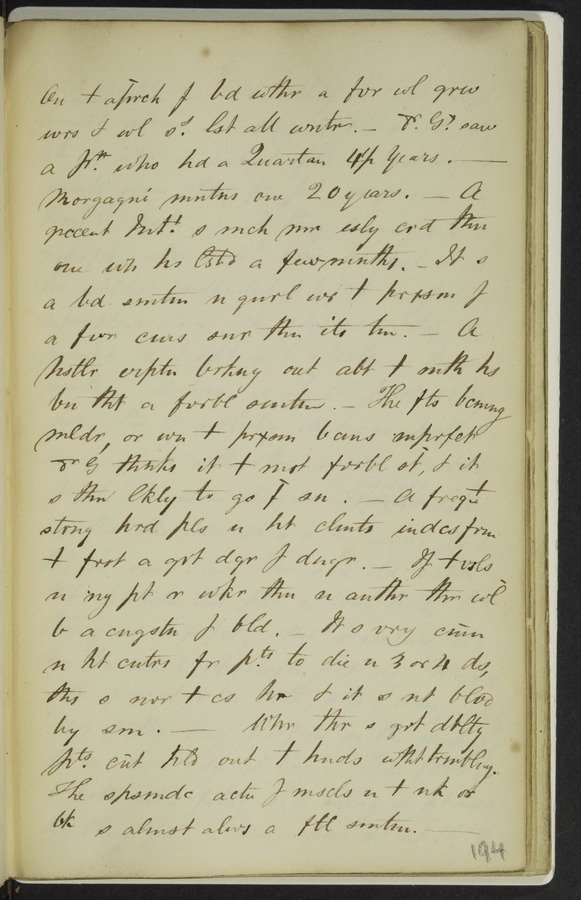 On + aprch f bd wthr a fvr wl grw
wrs & wl s? lst all wntr. — Dr. G? saw
a Pt who hd a Quartan 4½ years. —
Morgagni mntns one 20 years. — A
recent Intt s mch mr esly crd thn
one wh hs lstd a few mnths. — It s
a bd smtm n gnrl whr + prxsm f
a fvr cms snr thn its tm. — A
hstlr erptn brkng out abt + mth hs
bn tht a fvrbl smtm. — The fts bcmng
mldr, or wn + prxsm bcms mprfct
Dr G thnks it + mst fvrbl st, & it
s thn lkly to go f sn. — A freqt
strng hrd pls n ht clmts indcs frm
+ frst a grt dgr f dngr. — If + vsls
n ny pt r wkr thn n anthr thr wl
b a cngstn f bld. — It s vry cmn
n ht cntrs fr pts to die n 3 or 4 ds,
ths s nvr + cs hr & it s nt blvd
by sm. — Whr thr s grt dblty
pts cnt hld out + hnds wtht trmblng.
The spsmdc actn f mscls n + nk or
bk s almst alws a ftl smtm. —
194